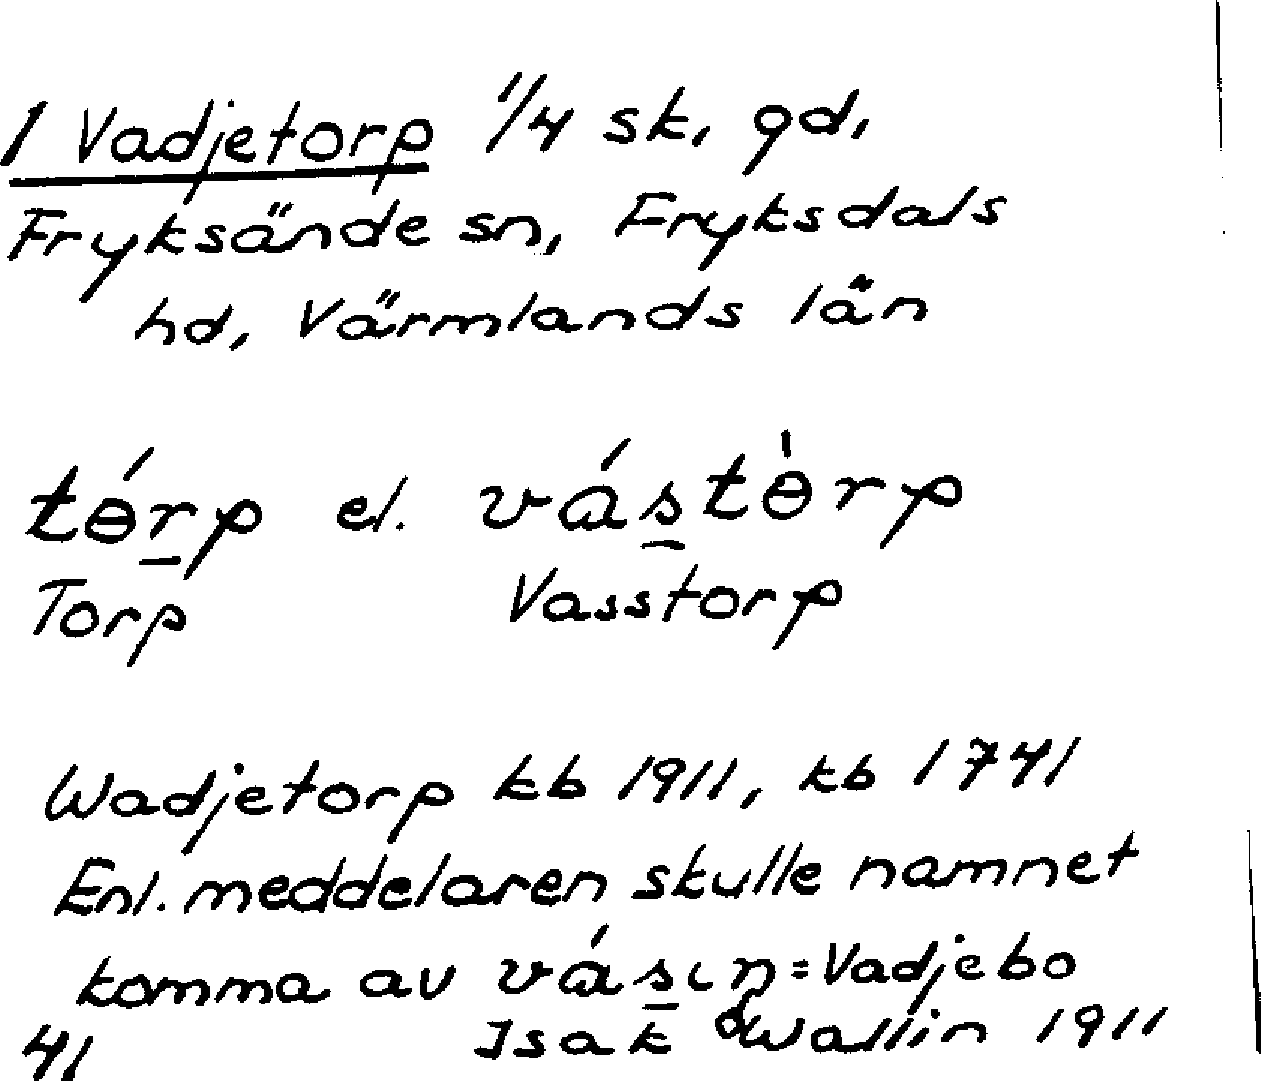 1 Vadjetorp 1/4 sk, gd,
Fryksände sn, Fryksdals
hd, Värmlands län
tɵ́r̲p el. vás̲tɵ̀rp
Torp Vasstorp
Wadjetorp kb 1911, kb 1741
Enl. meddelaren skulle namnet
komma av vás̲ıŋ = Vadjebo
41 Isak Wallin 1911